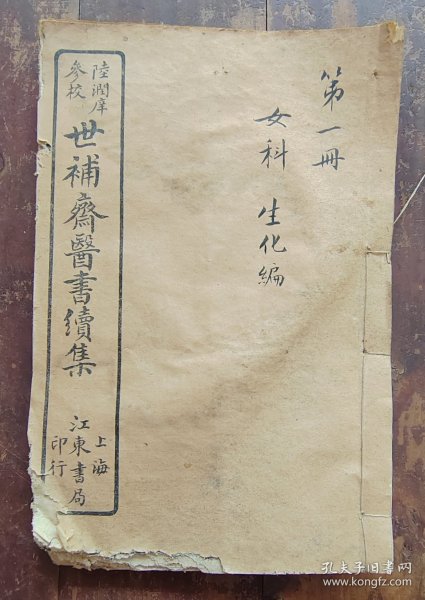 第一冊
女科 生化編
陸潤庠
參校
世補齋醫書續集
上海
江東書局
印行
孔夫子旧书网
www.kongfz.com